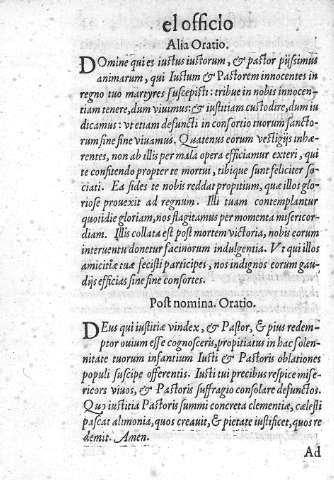 el officio
Alia Oratio.
DOmine qui es iustus iustorum, & pastor pijssimus
animarum, qui Iustum & Pastorem innocentes in
regno tuo martyres suscepisti: tribue in nobis innocen-
tiam tenere, dum viuimus: & iustitiam custodire, dum iu
dicamus: vt etiam defuncti in consortio tuorum sancto-
rum sine fine viuamus. Quatenus eorum vestigijs inhæ-
rentes, non ab illis per mala opera efficiamur exteri, qui
te confitendo propter te mortui, tibique sunt feliciter so-
ciati. Ea fides te nobis reddat propitium, quæ illos glo-
riose prouexit ad regnum. Illi tuam contemplantur
quotidie gloriam, nos flagitamus per momenta misericor-
diam. Illis collata est post mortem victoria, nobis eorum
interuentu donetur facinorum indulgentia. Vt qui illos
amicitiæ tuæ fecisti participes, nos indignos eorum gau-
dijs efficias sine fine consortes.
Post nomina. Oratio.
DEus qui iustitiæ vindex, & Pastor, & pius redem-
ptor ouium esse cognosceris, propitiatus in hac solen-
nitate tuorum infantium Iusti & Pastoris oblationes
populi suscipe offerentis. Iusti tui precibus respice mise-
ricors viuos, & Pastoris suffragio consolare defunctos.
Quo iustitia Pastoris summi concreta clementiæ, cælesti
pascat alimonia, quos creauit, & pietate iustificet, quos re
demit. Amen.
Ad